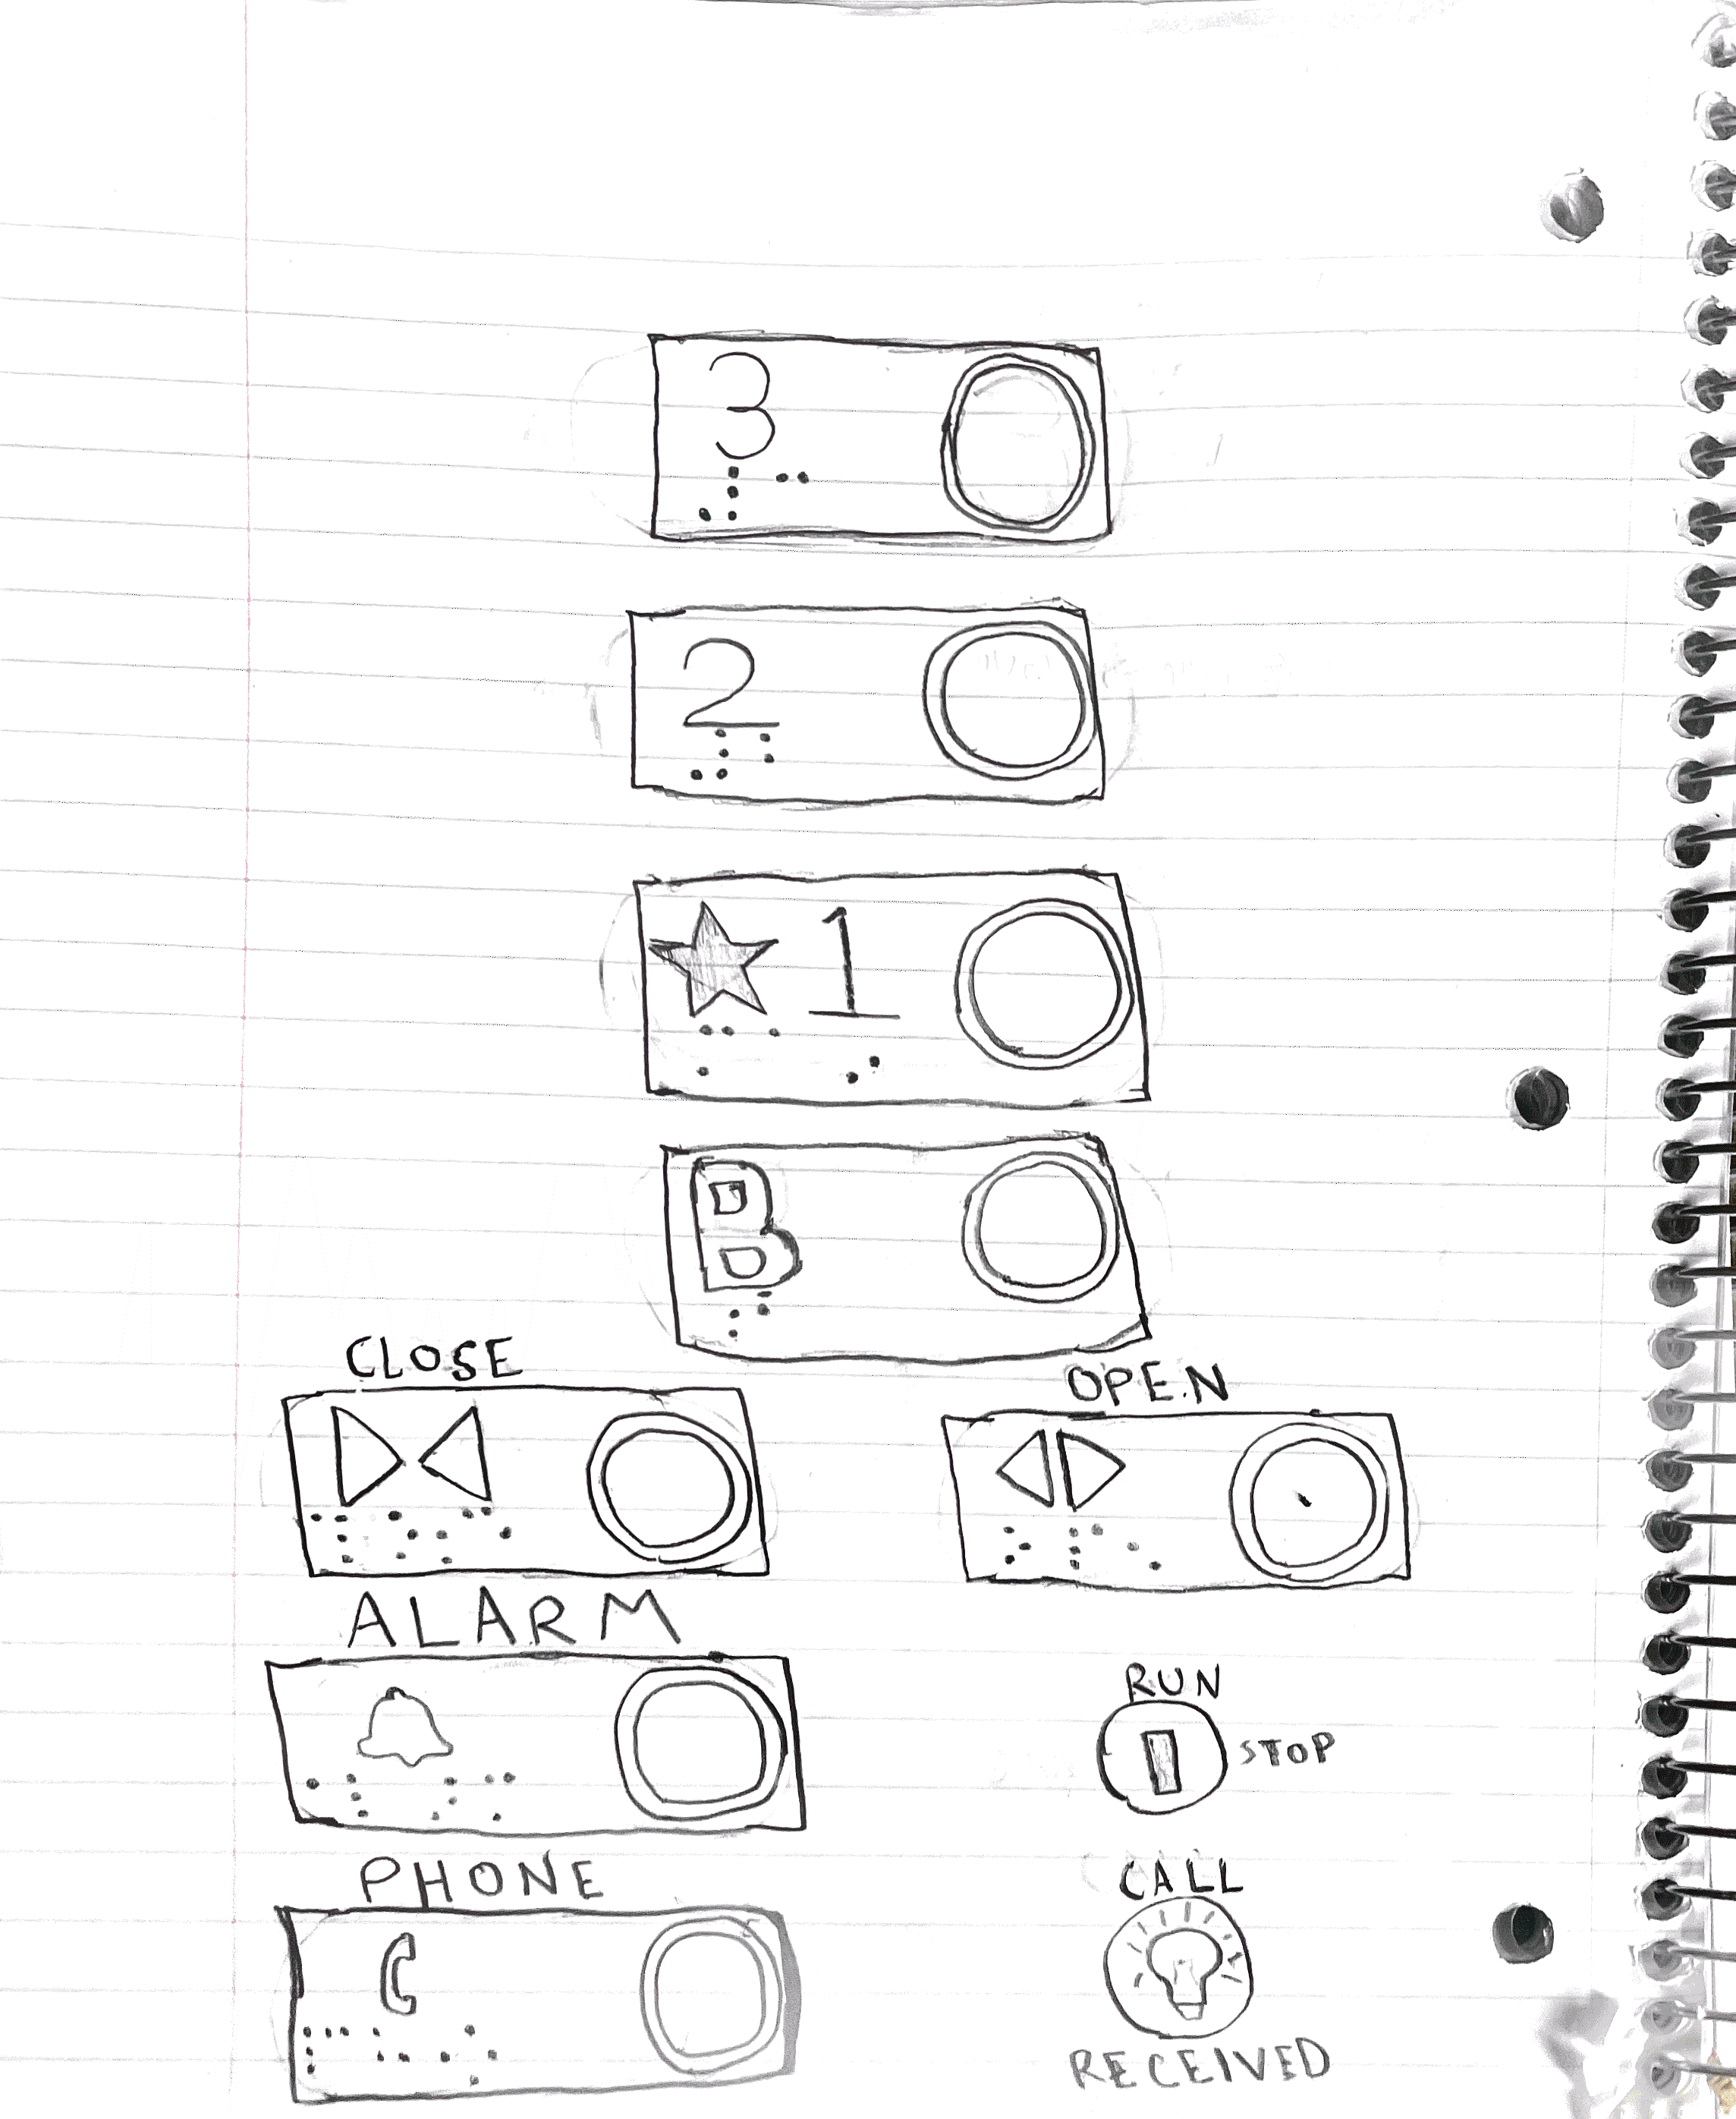 3
2
★ 1
B
CLOSE
OPEN
ALARM
RUN
STOP
PHONE
CALL
RECEIVED